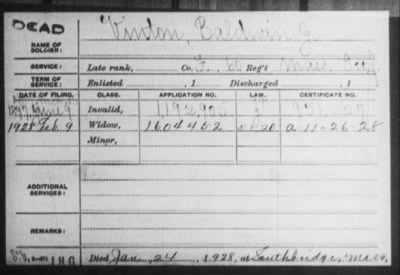 DEAD
Vinton, Baldwin G.
NAME OF SOLDIER:
SERVICE: Late rank, Co. F, 60 Reg't Mass. Inf.
TERM OF SERVICE: Enlisted , 1 Discharged , 1
DATE OF FILING. CLASS. APPLICATION NO. LAW. CERTIFICATE NO.
1897 Invalid,
1928 Feb 9 Widow, 1604452 20 a 11-26-28
Minor,
ADDITIONAL SERVICES:
REMARKS:
IHG Died Jan. 24, 1928, at Southbridge, Mass.